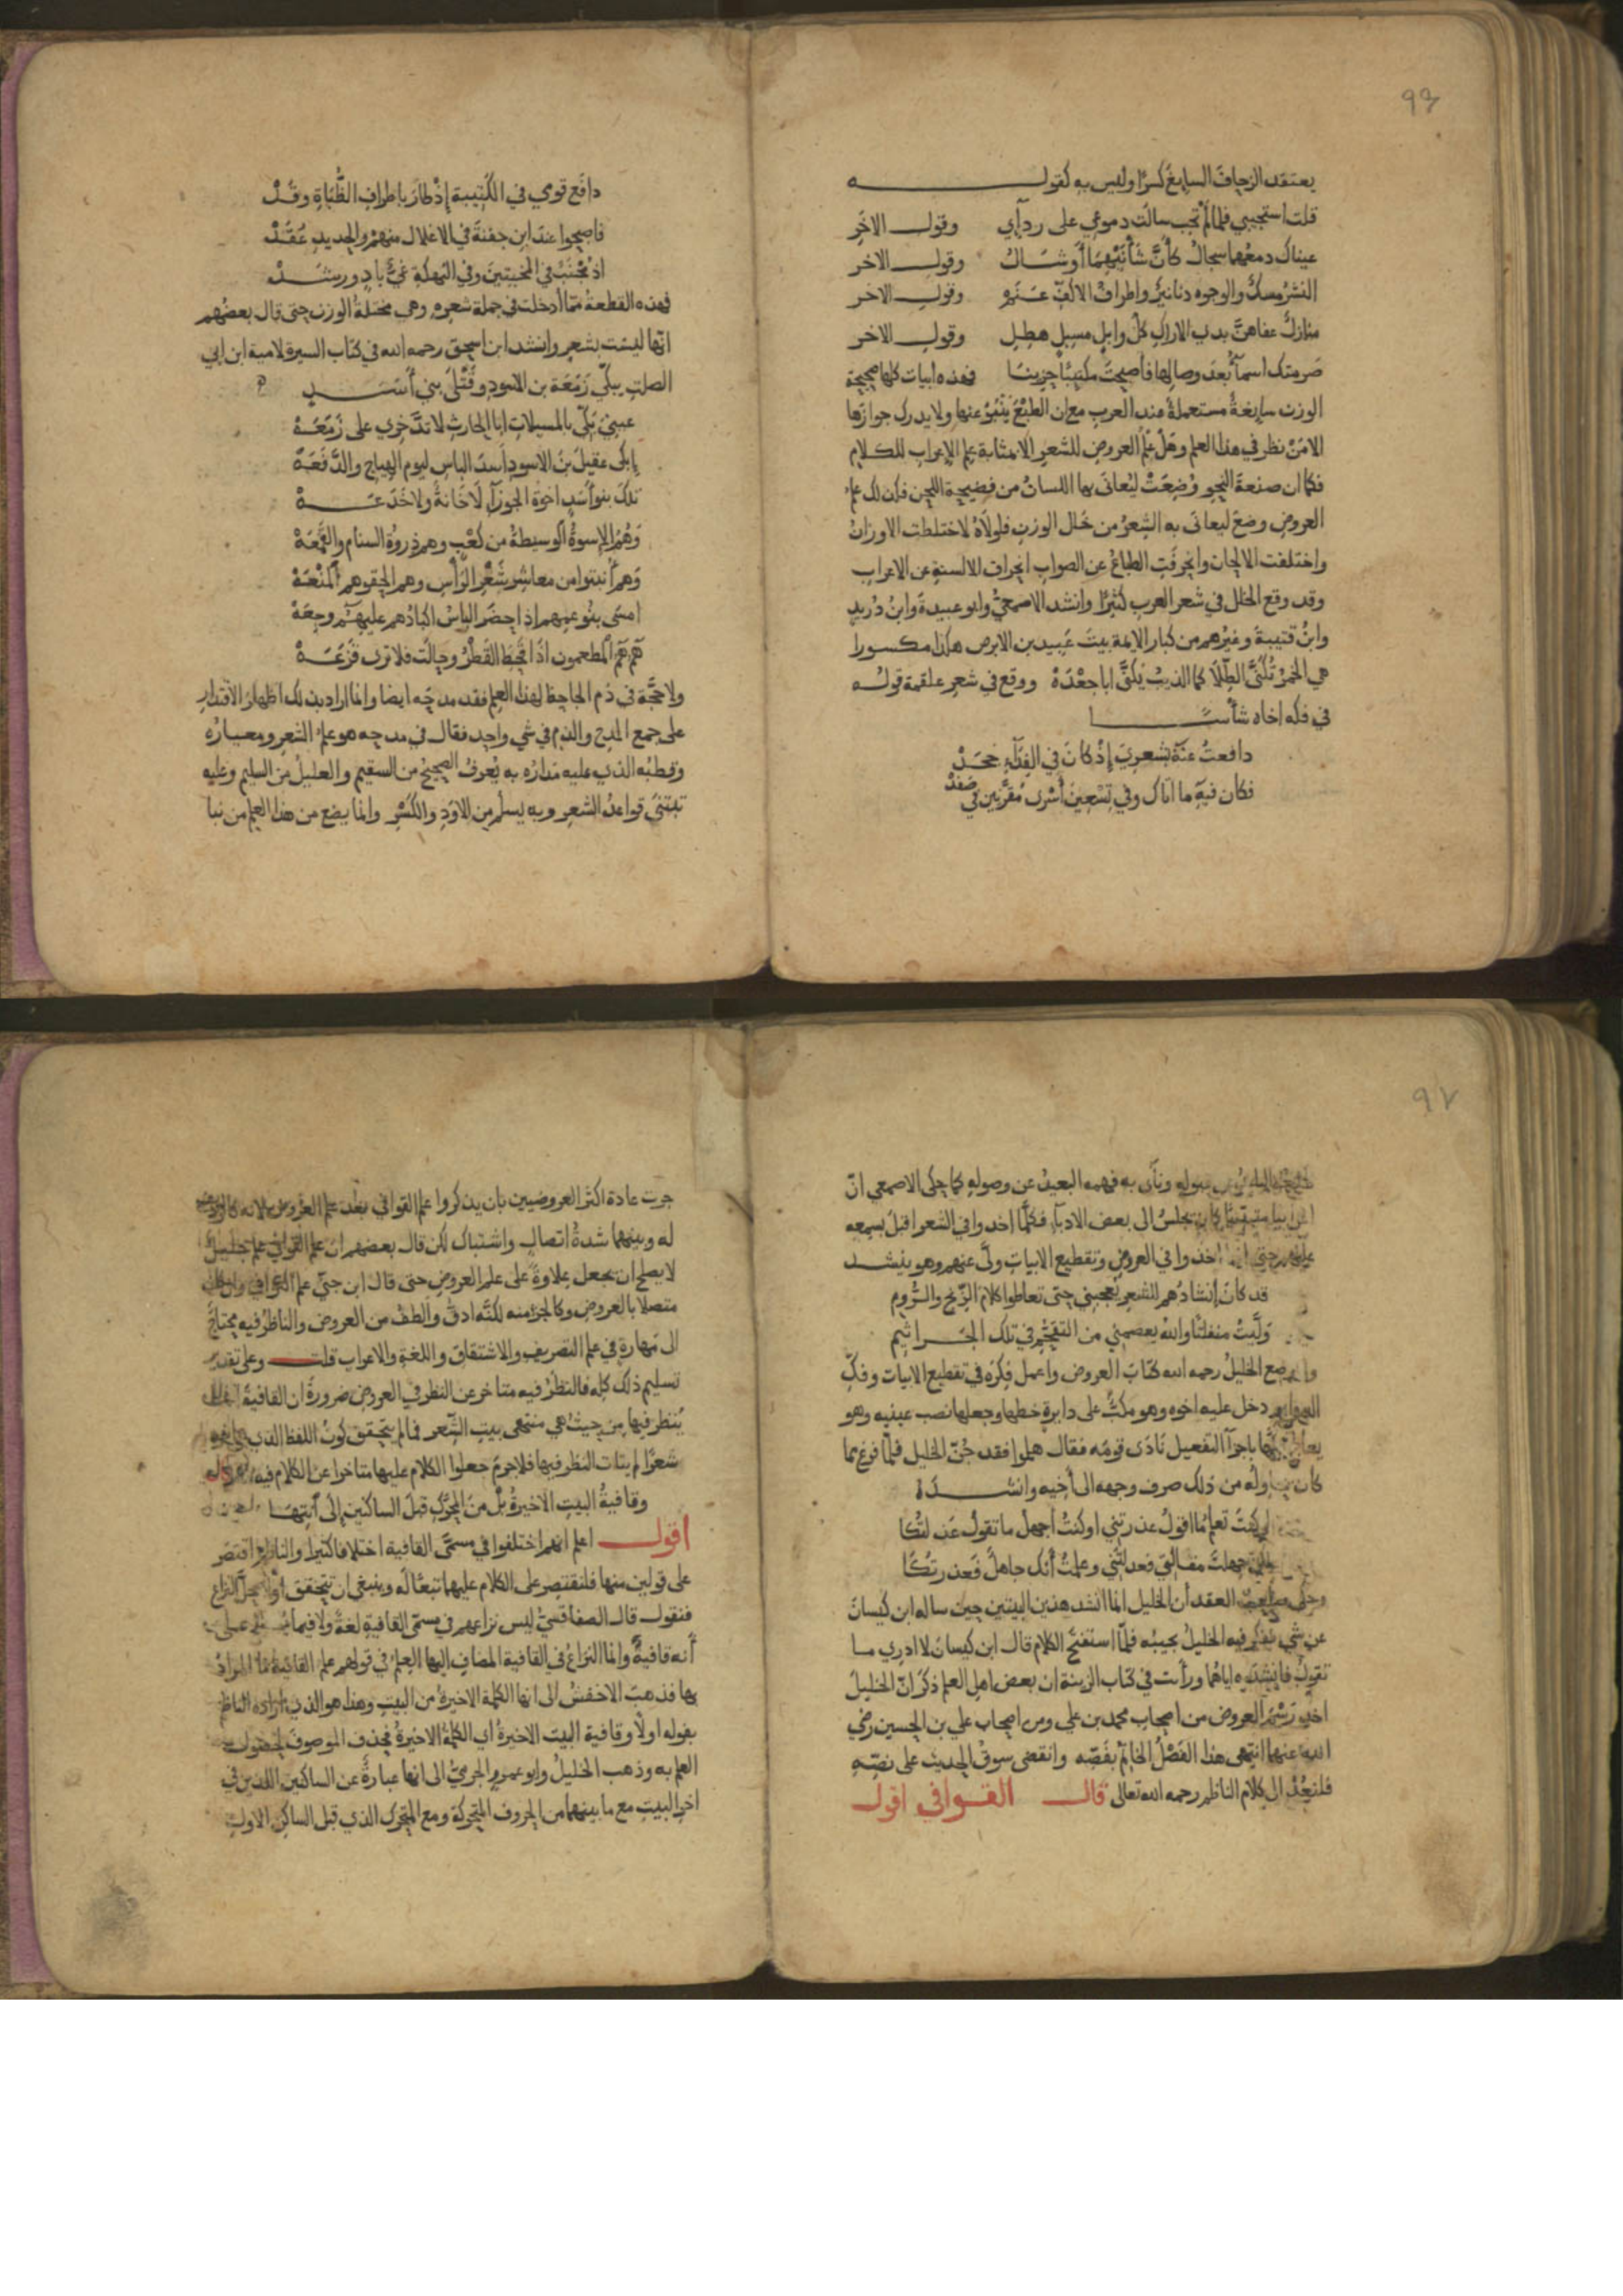 ٩٦
يعتقد الزحاف السايغ كسرًا وليس به كقوله
قلت استجيبي فلما لم تجب سالت دموعي على ردآي وقول الاخر
عيناك دمعهما سجال كأنّ شأنيهما أوشال وقول الاخر
النشر مسك والوجوه دنانير واطراف الاكف عنم وقول الاخر
منازل عفاهنّ بذي الاراك كل وابل مسبل هطل وقول الاخر
صرمتك اسمآ بعد وصالها فأصبحت مكتئبًا حزينا فهذه ابيات كلها صحيحة
الوزن سايغة مستعملة عند العرب مع ان الطبع ينبو عنها ولا يدرك جوازها
الا من نظر في هذا العلم وهل علم العروض للشعر الا بمثابة علم الاعراب للكلام
فكما ان صنعة النحو وضعت ليعافى بها اللسان من فضيحة اللحن فكذلك علم
العروض وضع ليعافى به الشعر من خلل الوزن فلولاه لاختلطت الاوزان
واختلفت الالحان وانحرفت الطباع عن الصواب انحراف الالسنة عن الاعراب
وقد وقع الخلل في شعر العرب كثيرًا وانشد الاصمعيّ وابو عبيدة وابن دريد
وابن قتيبة وغيرهم من كبار الايمة بيت عبيد بن الابرص هكذا مكسورا
هي الخمر تكنى الطلا كما الذيب يكنى ابا جعدة ووقع في شعر علقمة قوله
في فكه اخاه شأسا
دافعت عنه بشعري إذ كان في الفدآء جحد
فكان فيه ما اتاك وفي تسعين أسرى مقرّنين في صفد
دافع قومي في الكتيبة إذ طار باطراف الظباة وقد
فاصبحوا عند ابن جفنة في الاغلال منهم والحديد عقد
اذ مخنب في المخنبين وفي النهكة غيّ باد ورشد
فهذه القطعة ممّا أدخلت في جملة شعره وهي مختلة الوزن حتى قال بعضهم
انها ليست بشعر وانشد ابن اسحق رحمه الله في كتاب السيرة لامية ابن ابي
الصلت يبكي زمعة بن الاسود وقتلى بني أسد
عيني بكّي بالمسبلات ابا الحارث لا تذخري على زمعه
ابكى عقيل بن الاسود اسد الباس ليوم الهياج والدفعه
تلك بنو أسد اخوة الجوزآ لا خانة ولا خدعه
وهم الاسرة الوسيطة من كعب وهم ذروة السنام والقمعه
وهم أنبتوا من معاشر شعر الرأس وهم الحقوهم المنعه
امسى بنو عمهم اذا حضر الباس اكبادهم عليهم وجعه
هم هم المطعمون اذا قحط القطر وحالت فلا ترى قزعه
ولا حجّة في ذم الجاحظ لهذا العلم فقد مدحه ايضا وانما اراد بذلك اظهار الاقتدار
على جمع المدح والذم في شي واحد فقال في مدحه هو علم الشعر ومعياره
وقطبه الذي عليه مداره به يعرف الصحيح من السقيم والعليل من السليم وعليه
تبتنى قواعد الشعر وبه يسلم من الاود والكسر وانما يضع من هذا العلم من نبا
٩٧
قبوله ونأى به فهمه البعيد عن وصوله كما حكى الاصمعي انّ
يجلس الى بعض الادبآ فكلما اخذوا في الشعر اقبل بسمعه
عليهم حتى اخذوا في العروض وتقطيع الابيات ولّى عنهم وهو ينشد
قد كان إنشادهم للشعر يعجبني حتى تعاطوا كلام الزنج والروم
ولّيت منفلتًا والله يعصمني من التقحم في تلك الجراثيم
وضع الخليل رحمه الله كتاب العروض واعمل فكره في تقطيع الابيات وفكّ
دخل عليه اخوه وهو مكبّ على دايرة خطها وجعلها نصب عينيه وهو
باجزآ التفعيل نادى قومه فقال هلموا فقد جنّ الخليل فلمّا فرغ مما
كان يحاوله من ذلك صرف وجهه الى أخيه وانشده
لو كنت تعلم ما اقول عذرتني او كنت أجهل ما تقول عذلتكا
لكن جهلت مقالتي فعذلتني وعلمت أنك جاهل فعذرتكا
العقد أن الخليل انما انشد هذين البيتين حين ساله ابن كيسان
عن شي ففكر فيه الخليل يجيبه فلمّا استفتح الكلام قال ابن كيسان لا ادري ما
تقول فانشده اياهما ورأت في كتاب الزينة ان بعض اهل العلم ذكر انّ الخليل
اخذ رسم العروض من اصحاب محمد بن علي ومن اصحاب علي بن الحسين رضي
الله عنهما انتهى هذا الفصل الخاتم بفصّه وانقضى سوق الحديث على نصّه
فلنعد الى كلام الناظم رحمه الله تعالى قال القوافي اقول
جرت عادة اكثر العروضيين بان يذكروا علم القوافي بعد علم العروض لانه كالرديف
له وبينهما شدة اتصال واشتباك لكن قال بعضهم ان علم القوافي علم جليل
لا يصلح ان يجعل علاوة على علم العروض حتى قال ابن جنّي علم القوافي وان كان
متصلا بالعروض وكالجزء منه لكنه ادق والطف من العروض والناظر فيه يحتاج
الى مهارة في علم التصريف والاشتقاق واللغة والاعراب قلت وعلى تقدير
تسليم ذلك كله فالنظر فيه متاخر عن النظر في العروض ضرورة ان القافية انما
ينظر فيها من حيث هي منتهى بيت الشعر فما لم يتحقق كون اللفظ الذي
شعرًا لم يتات النظر فيها فلا جرم جعلوا الكلام عليها متاخرا عن الكلام فيه قال
وقافية البيت الاخيرة بل من المحرك قبل الساكنين إلى انتها
اقول اعلم انهم اختلفوا في مسمّى القافية اختلافا كثيرا والناظم اقتصر
على قولين منها فلنقتصر على الكلام عليهما تبعًا له وينبغي ان يتحقق أولا محل النزاع
فنقول قال الصفاقسيّ ليس نزاعهم في مسمّى القافية لغة ولا فيما يصطلح على
أنه قافية وانما النزاع في القافية المضاف إليها العلم في قولهم علم القافية ما المراد
بها فذهب الاخفش الى انها الكلمة الاخيرة من البيت وهذا هو الذي اراده الناظم
بقوله اولا وقافية البيت الاخيرة اي الكلمة الاخيرة فحذف الموصوف لحصول
العلم به وذهب الخليل وابو عمرو الجرميّ الى انها عبارة عن الساكنين اللذين في
اخر البيت مع ما بينهما من الحروف المتحركة ومع المتحرك الذي قبل الساكن الاول